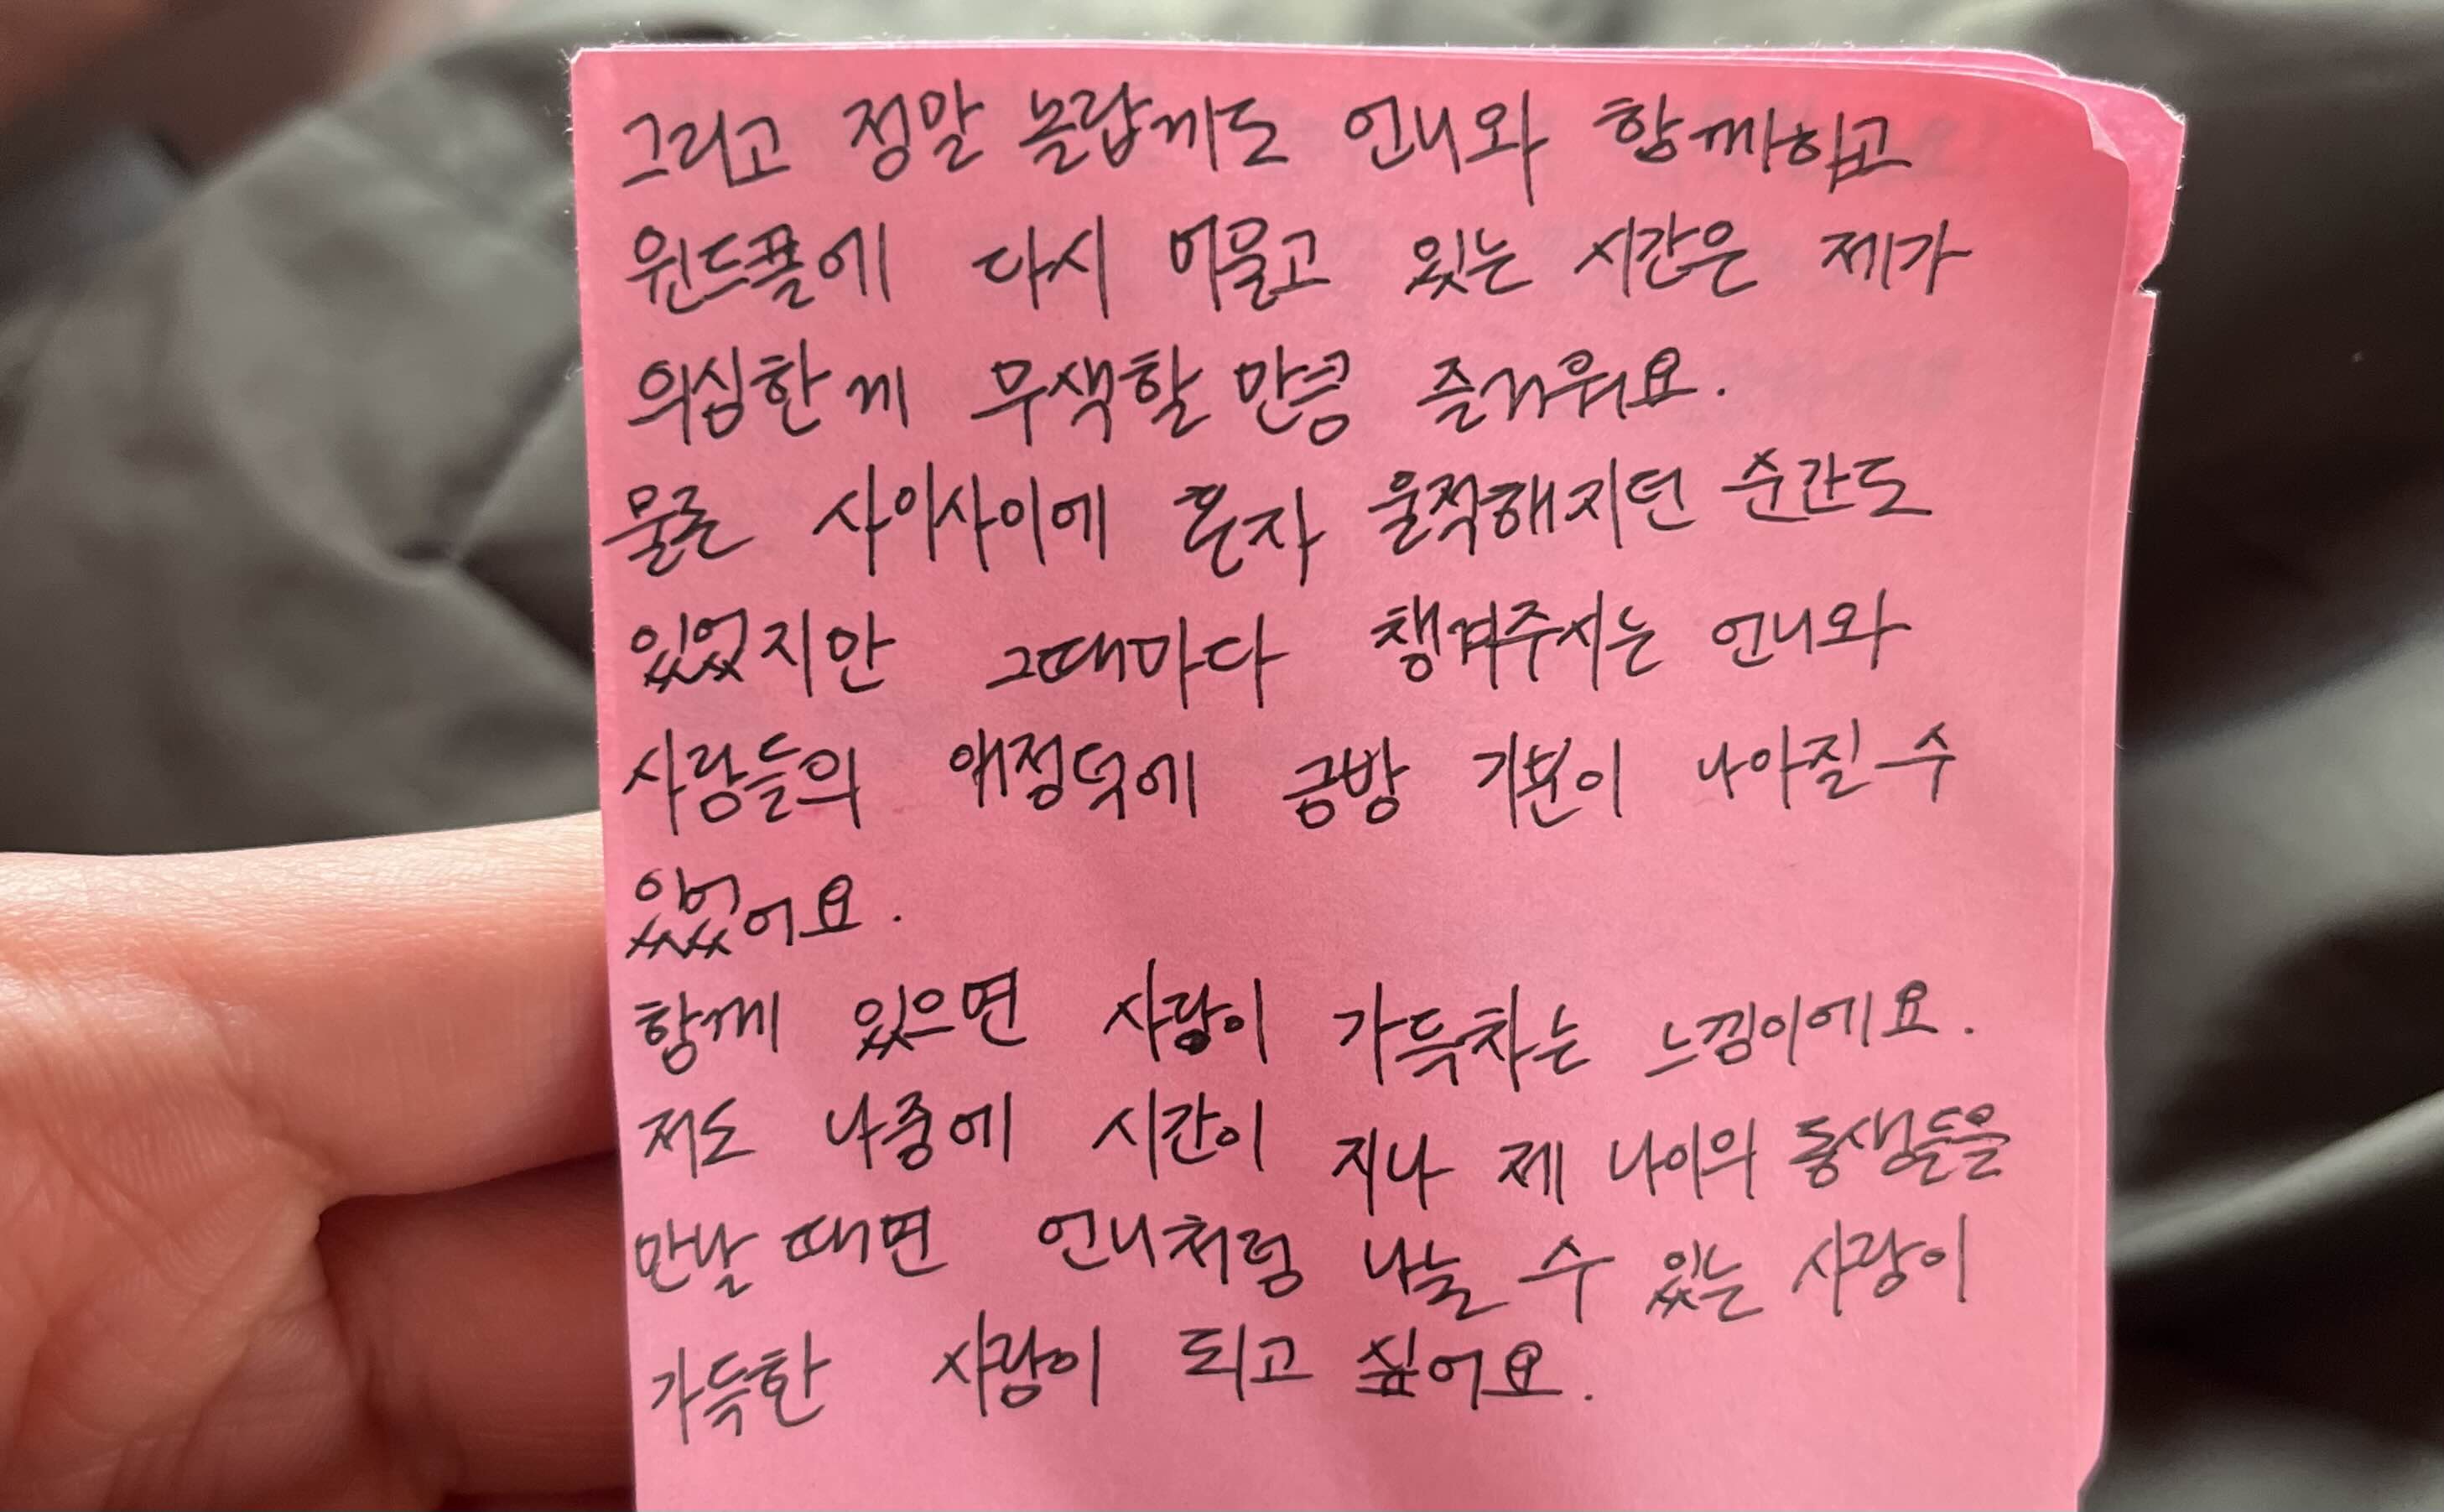 그리고 정말 놀랍게도 언니와 함께하고
윈드폴에 다시 머물고 있는 시간은 제가
의심한게 무색할 만큼 즐거워요.
물론 사이사이에 혼자 울적해지던 순간도
있었지만 그때마다 챙겨주시는 언니와
사람들의 애정덕에 금방 기분이 나아질 수
있었어요.
함께 있으면 사랑이 가득차는 느낌이에요.
저도 나중에 시간이 지나 제 나이의 동생들을
만날 때면 언니처럼 나눌 수 있는 사랑이
가득한 사람이 되고 싶어요.